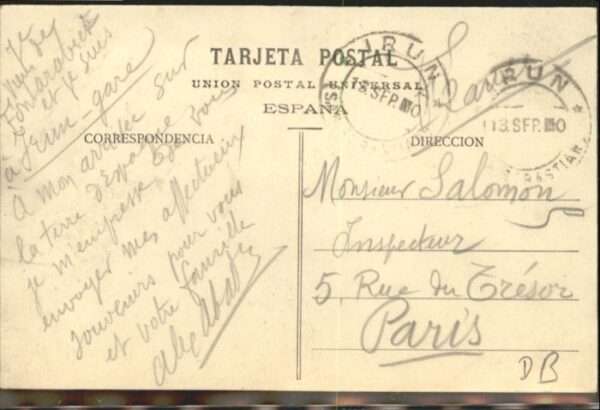 Je
viens de
Fontarabie
et je suis
à Irun-gare
A mon arrivée sur
la terre d'Espagne
je m'empresse de vous
envoyer mes affectueux
souvenirs pour vous
et votre famille
TARJETA POSTAL
UNION POSTAL UNIVERSAL
ESPAÑA
CORRESPONDENCIA
DIRECCION
IRUN
13 SEP 10
France
IRUN
13 SEP 10
SEBASTIAN
Monsieur Salomon
Inspecteur
5, Rue du Trésor
Paris
DB